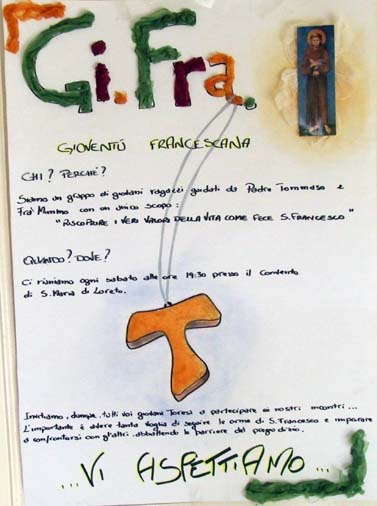 Gi.Fra.
GIOVENTÚ FRANCESCANA
CHI? PERCHE'?
Siamo un gruppo di giovani ragazzi guidati da Padre Tommaso e
Fra' Mimmo con un unico scopo:
"RISCOPRIRE I VERI VALORI DELLA VITA COME FECE S. FRANCESCO"
QUANDO? DOVE?
Ci riuniamo ogni sabato alle ore 19:30 presso il Convento
di S. Maria di Loreto.
Invitiamo, dunque, tutti voi giovani Toresi a partecipare ai nostri incontri...
L'importante è avere tanta voglia di seguire le orme di S. Francesco e imparare
a confrontarsi con gli altri abbattendo le barriere del pregiudizio.
...VI ASPETTIAMO...